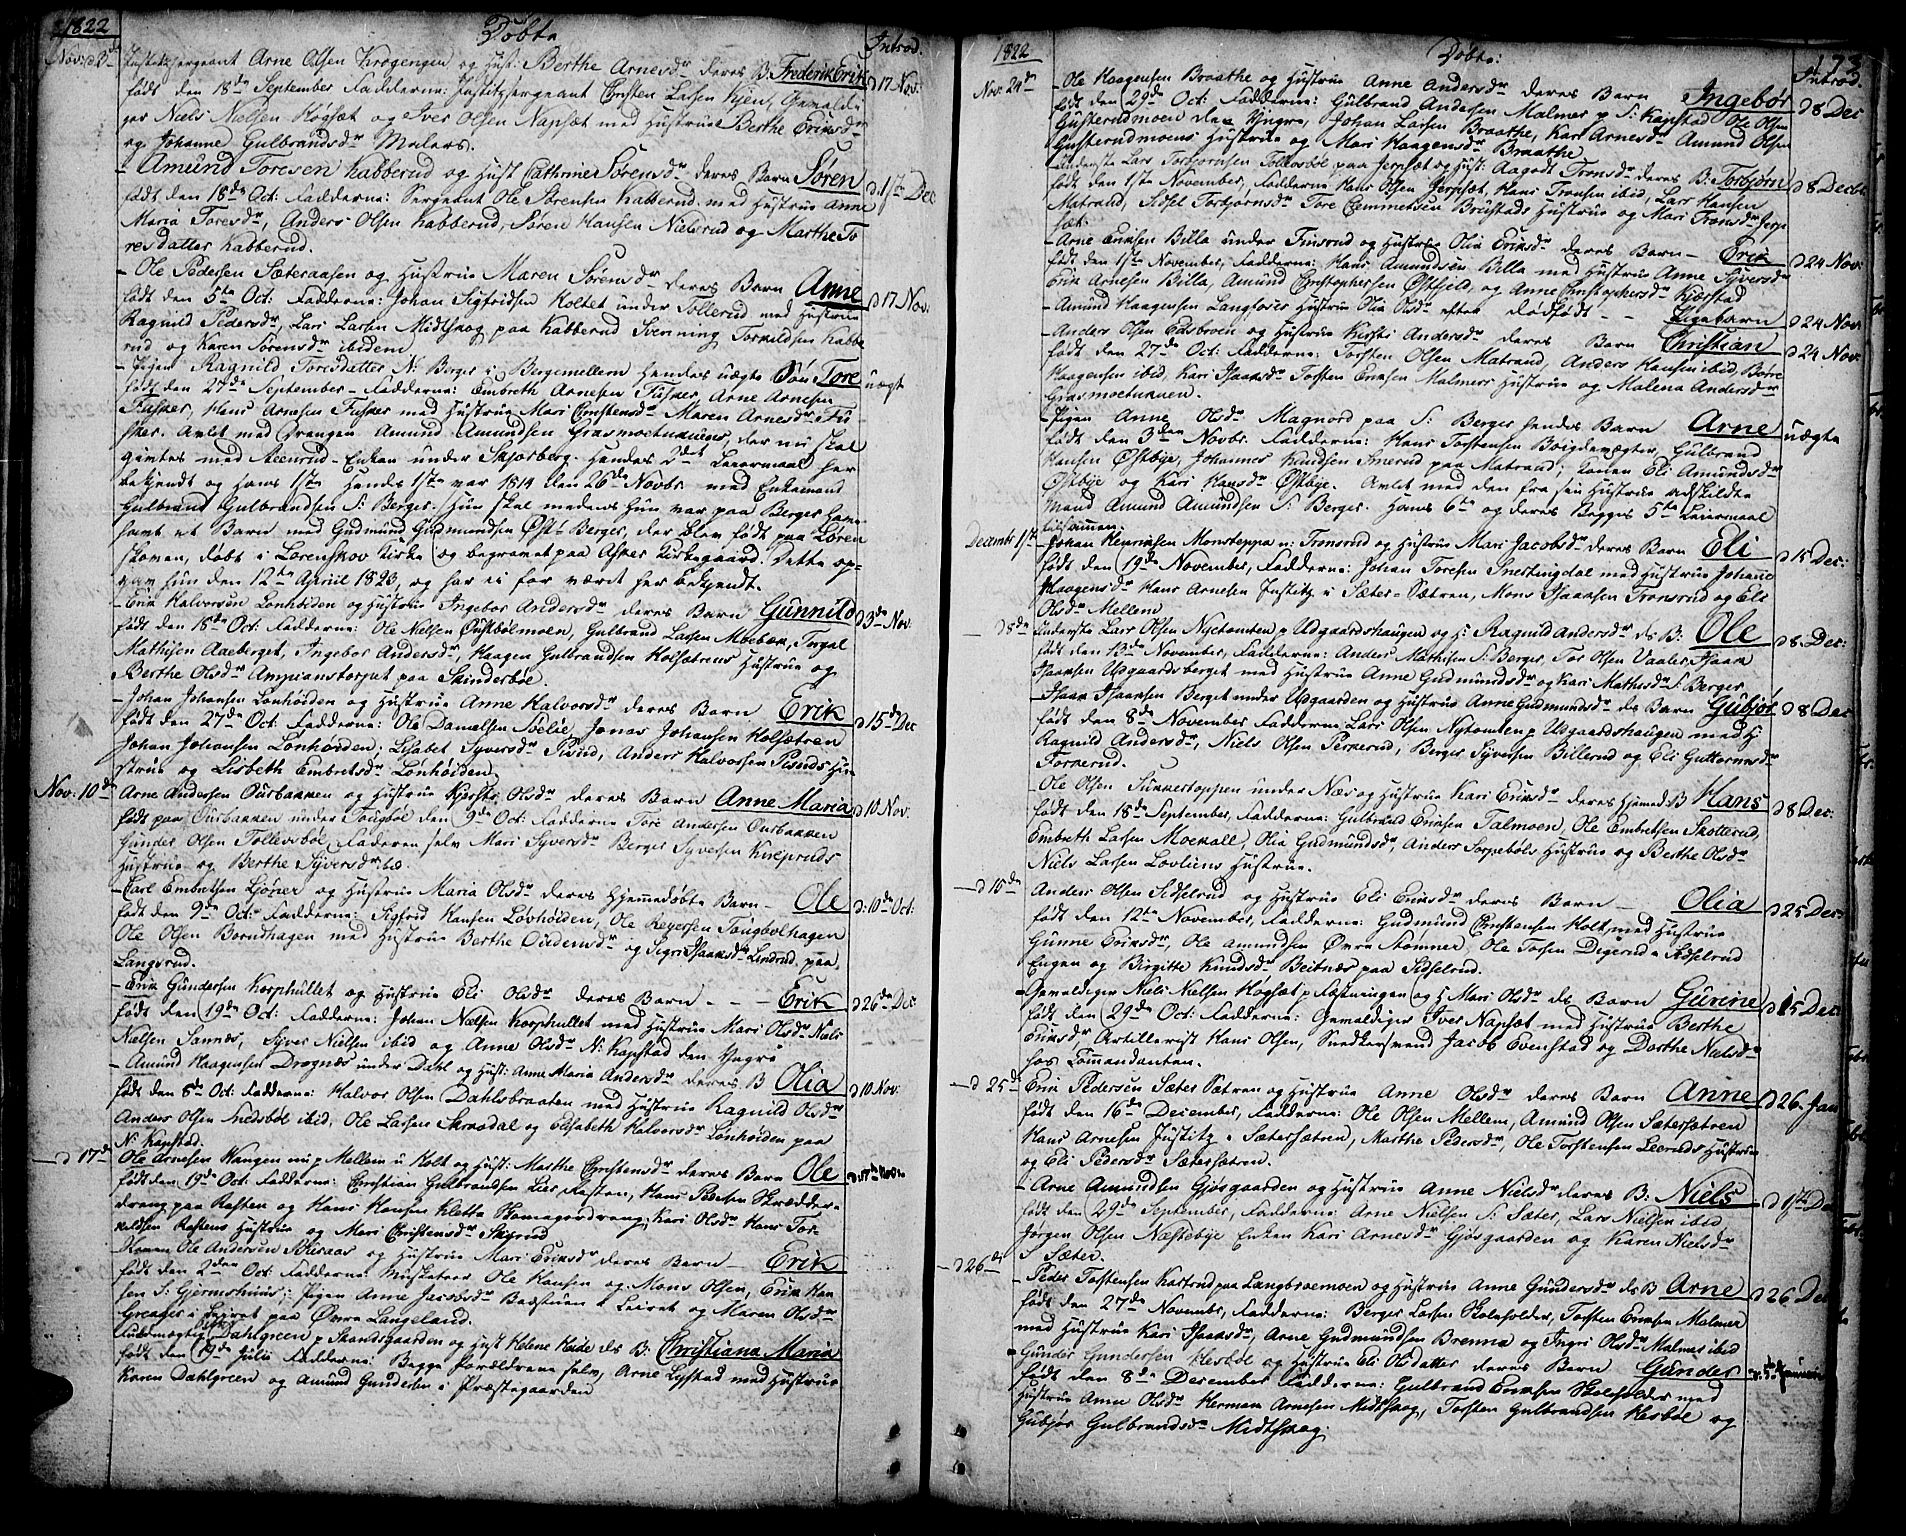 1822
Döbte
Introd.
Nov: d 3die
Justitssergeant Arne Olsen Krogengen og Hust: Berthe Arnesdr deres B: Frederik Erik d 17 Nov:
født den 18de September Fadderne: Justitssergeant Christen Larsen Kjens, Gevaldi
ger Niels Nielsen Høgsæt og Iver Olsen Napsæt med Hustrue Berthe Eriksdr
og Johanne Gulbrandsdr Malers.
- Amund Toresen Kabberud og Hust Cathrine Sørensdr deres Barn Søren d: 1ste Dec
født den 18de Oct: Fadderne: Sergeant Ole Sørensen Kabberud med Hustrue Anne
Maria Toresdr, Anders Olsen Kabberud, Søren Hansen Nielsrud og Marthe To
resdatter Kabberud.
- Ole Pedersen Sæteraasen og Hustrue Maren Sørensdr deres Barn Anne d 17 Nov.
født den 5te Oct: Fadderne: Johan Sigfridsen Holtet under Tollerud med Hustrue
Ragnild Pedersdr, Lars Larsen Midtskog paa Kabberud Svenning Torkildsen Kabbe
rud og Karen Sørensdr ibidem
- Pigen Ragnild Toresdatter N: Berger i Bergemellem hendes uægte Søn Tore uægt
født den 27de September - Fadderne: Embreth Arnesen Fusker, Arne Arnesen
Fusker, Hans Arnesen Fusker med Hustrue Mari Christensdr Maren Arnesdr Fu
sker. Avlet med Drengen Amund Amundsen Græsmoetuenn, der nu skal
giftes med Aeenrud-Enken under Skjørberg. Hendes 2det Leiermaal her
bekjendt og hans 1ste Hendes 1ste var 1814 den 26de Novbr med Enkemand
Gulbrand Gulbrandsen S: Berger. Hun skal medens hun var paa Berger have
havt et Barn med Gudmund Gudmundsen Øst-Berger, der blev født paa Løren
skoven, døbt i Lørenskov Kirke og begravet paa Asker Kirkegaard. Dette op-
gav hun den 12te April 1823, og har ei før været her bekjendt.
- Erik Halvorsen Lønhøiden og Hustrue Ingebor Andersdr deres Barn Gunnild d 3de Nov:
født den 18de Oct: Fadderne: Ole Nielsen Ousbølmoen, Gulbrand Larsen Moebæk, Ingel
Mathisen Aaeberget, Ingebor Andersdr, Haagen Gulbrandsen Holsætrens Hustrue og
Berthe Olsdr Ampianstorpet paa Skinderbøl.
- Johan Johansen Lønhøiden og Hustrue Anne Halvorsdr deres Barn Erik d 15de Dec
født den 27de Oct: Fadderne: Ole Danielsen Sølie, Jonas Johansen Holsætren
Johan Johansen Lønhøiden, Lisabet Syversdr Tisind, Anders Halvorsen Tisinds Hu
strue og Lisbeth Embretsdr Lønhøiden
Nov: 10de
Arne Andersen Ousbakken og Hustrue Kjersti Olsdr deres Barn Anne Maria d 10 Nov:
født paa Ousbakken under Tougbøl den 9de Oct: Fadderne Tore Andersen Ousbakken
Gunder Olsen Tollevsbøl Faderen selv Mari Syversdr Berger Syversen Kneprudes
Hustrue og Berthe Syversdr
- Carl Embretsen Tjøner og Hustrue Maria Olsdr deres Hjemmedøbte Barn - Ole d: 10de Oct:
født den 9de Oct: Fadderne: Sigfrid Hansen Løvhøiden, Ole Reyersen Tougbølhagen
Ole Olsen Borudhagen med Hustrue Berthe Oudensdr og Sigri Isaaksdr Lindrud paa
Langsrud.
- Erik Gundersen Korphullet og Hustrue Eli Olsdr deres Barn - - Erik d 26de Dec
født den 19de Oct: Fadderne: Johan Nielsen Korphullet med Hustrue Mari Olsdr Niels
Nielsen Sannæs, Syver Nielsen ibid og Anne Olsdr N: Kapstad den Yngre
- Amund Haagensen Drognæs under Dahl og Hust: Anne Maria Andersdr deres B Olia d 10 Nov:
født den 8de Oct: Fadderne: Halvor Olsen Dahlsbraaten med Hustrue Ragnild Olsdr
Anders Olsen Snedsbøl ibid, Ole Larsen Skrædal og Elisabeth Halvorsdr Lønhøiden paa
N: Kapstad.
- d 17de
Ole Arnesen Haugen nu p Mellem u: Holt og Hust: Marthe Christensdr deres Barn Ole d: 17de Nov
født den 19de Oct: Fadderne: Christian Gulbrandsen Lier Rasten, Hans Pedersen Skrædder-
dreng paa Rasten og Hans Hansen Kletta Skomagerdreng, Kari Olsdr Hans Tor-
keldsen Rastens Hustrue og Mari Christensdr Skjerud
- Ole Andersen Skiraas og Hustrue Mari Eriksdr deres Barn - Erik
født den 2den Oct: Fadderne: Musketeer Ole Hansen og Mons Olsen, Erik Han
sen S: Gjermshuus, Pigen Anne Jacobsdr Badstuen i Leiret og Maren Olsdr
Greager i Leiret paa Øvre Langeland.
Fuldmægtig Dahlgreen p Skandsgaarden og Hust Helene Heide ds B: Christiana Maria
født den 19de Julii Fadderne: Begge Forældrene selv, Arne Lystad med Hustrue
Karen Dahlgreen og Amund Gundersen i Præstegaarden
1822
Döbte:
173
Introd.
Nov: 24de
- Ole Haagensen Braathe og Hustrue Anne Andersdr deres Barn Ingebør d 8 Dec
født den 29de Oct: Fadderne: Gulbrand Andersen Malmer p S: Kapstad Ole Olsen
Gusterudmoen den Yngre, Johan Larsen Braathe, Kari Arnesdr Amund Olsen
Gusterudmoens Hustrue og Mari Haagensdr Braathe
Inderste Lars Torbjørnsen Tollersbøl paa Jerpset og Hust: Aagodt Tronsdr deres B: Torbjørn d 8 Decbr
født den 1ste November, Fadderne Hans Olsen Jerpsæt, Hans Tronsen ibid, Lars Hansen
Matrand, Sidsel Torbjørnsdr Tore Clemmetsen Brustads Hustrue og Mari Tronsdr Jerp
sæt.
- Arne Eriksen Billa under Finsrud og Hustrue Olia Eriksdr deres Barn - Erik d 24 Nov:
født den 1ste November, Fadderne: Hans Amundsen Billa med Hustrue Anne Syversdr
Erik Arnesen Billa, Amund Christophersen Østhjeld, og Anne Christophersdr Kjærstad
- Amund Haagensen Langfosses Hustrue Olia Olsdr efter Dødfødt - - Pigebarn d 24 Nov:
Anders Olsen Edsbroen og Hustrue Kirsti Andersdr deres Barn Christian d 24 Nov:
født den 27de Oct: Fadderne: Torsten Olsen Matrand, Anders Hansen ibid Børre
Haagensen ibid, Kari Isaaksdr Torsten Eriksen Malmers Hustrue og Malena Andersdr
Græsmoetuenen.
- Pigen Anne Olsdr Magnord paa S: Berger hendes Barn Arne uægte
født den 3den Novbr. Fadderne: Hans Torstensen Boigdevægter, Gulbrand
Hansen Østbye, Johannes Knudsen Smerud paa Matrand; Konen Eli Amundsdr
Østbye og Kari Hansdr Østbye. Avlet med den fra sin Hustrue adskildte
Mand Amund Amundsen S: Berger. Hans 6te og deres Begges 5te Leiermaal
tilsammen.
Decembr 1ste
- Johan Henriksen Monstoppa u: Tronsrud og Hustrue Mari Jacobsdr deres Barn Eli d 15 Dec:
født den 19de November, Fadderne: Johan Toresen Snertingdal med Hustrue Johanne
Haagensdr Hans Arnesen Justitz i Sæter-Sætren, Mons Isaaksen Tronsrud og Eli
Olsdr Mellem
- d 8de
Inderste Lars Olsen Nytomten p Udgaardshaugen og H: Ragnild Andersdr ds B: Ole d 8 Dec:
født den 12te November, Fadderne: Anders Mathisen S: Berger, Tor Olsen Vaaler, Isaak
Isaaksen Udgaardsberget med Hustrue Anne Gudmundsdr og Kari Mathisdr S: Berger
- Isaak Isaaksen Berget under Udgaarden og Hustrue Anne Gudmundsdr ds Barn Gubjør d 8 Dec
født den 8de November Fadderne: Lars Olsen Nytomten p Udgaardshaugen med H
Ragnild Andersdr, Niels Olsen Perkerud, Berger Syversen Billerud og Eli Guttormsdr
Fornerud.
Ole Olsen Sukkertoppen under Næs og Hustrue Kari Eriksdr deres Hiemmed B Hans d 8 Dec:
født den 18de September, Fadderne: Gulbrand Eriksen Talmoen, Ole Embretsen Skotterud
Embreth Larsen Moevall, Olia Gudmundsdr, Anders Torpebøls Hustrue og Berthe Olsdr
Niels Larsen Lovliens Hustrue.
- d 15de
Anders Olsen Sidselrud og Hustrue Eli Eriksdr deres Barn - Olia d 25 Dec:
født den 12te November, Fadderne: Gudmund Christensen Holt, med Hustrue
Gunne Eriksdr, Ole Amundsen Øvre Nommer, Ole Torsen Digerud Sidselrud
Eugen og Birgitte Knudsdr Beitnæs paa Sidselrud.
- Gevaldiger Niels Nielsen Hogsæt p Fæstningen og H Mari Olsdr ds Barn Gurine d 15 Dec:
født den 29de Oct: Fadderne: Gevaldiger Iver Napsæt med Hustrue Berthe
Eriksd, Artillerist Hans Olsen, Snedkersvend Jacob Evenstad og Dorthe Nielsdr
hos Commandanten.
- d 25de
Erik Pedersen Sæter Sætren og Hustrue Anne Olsdr deres Barn Anne d 26. Jan
født den 16de December, Fadderne: Ole Olsen Mellem, Amund Olsen Sætersætren
Hans Arnesen Justitz i Sætersætren, Marthe Pedersdr, Ole Torstensen Leeruds Hustrue
og Eli Pedersdr Sætersætren.
- Arne Amundsen Gjøsgaarden og Hustrue Anne Nielsdr deres B: Niels d 1ste De
født den 29de September, Fadderne: Arne Nielsen S: Sæter, Lars Nielsen ibid
Jørgen Olsen Næstebye Enken Kari Arnesdr Gjøsgaarden og Karen Nielsdr
S Sæter.
- d 26de
- Peder Torstensen Kastrud paa Langbroemoen og Hustrue Anne Gundersdr ds B Arne d 26 De
født den 27de Novembr, Fadderne: Berger Larsen Skoleholder, Torsten Eriksen Malmer
med Hustrue Kari Isaaksdr, Arne Gudmundsen Brenna og Ingri Olsdr Malmer ibid
- Gunder Gundersen Hesbøl og Hustrue Eli Olsdatter deres Barn Gunder d: 5te Januari
født den 8de December Fadderne: Gulbrand Eriksen Skoleholder med
Hustrue Anne Olsdr Herman Arnesen Midtskog, Torsten Gulbrandsen Hesbøl og
Gubjør Gulbrandsdr Midtskog.